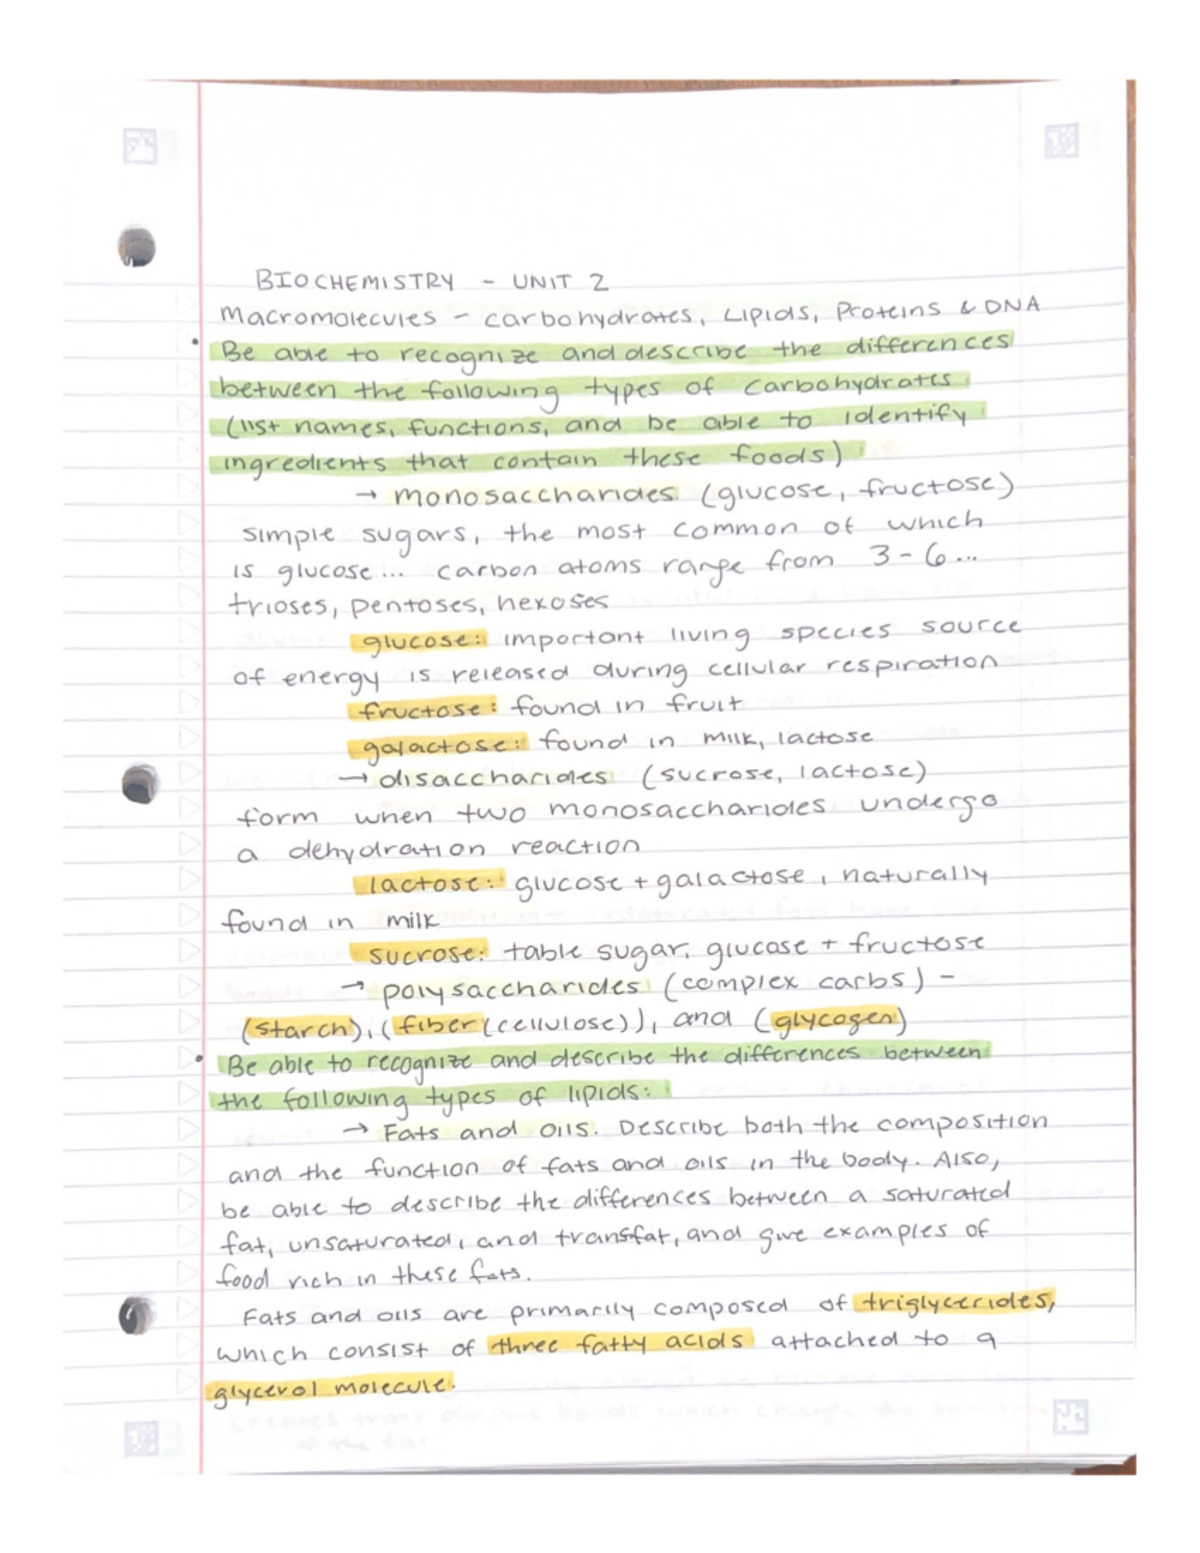 BIOCHEMISTRY - UNIT 2
Macromolecules - carbohydrates, Lipids, Proteins & DNA
• Be able to recognize and describe the differences
between the following types of carbohydrates
(list names, functions, and be able to identify
ingredients that contain these foods)
→ monosaccharides (glucose, fructose)
simple sugars, the most common of which
is glucose... carbon atoms range from 3-6...
trioses, pentoses, hexoses
glucose: important living species source
of energy is released during cellular respiration
fructose: found in fruit
galactose: found in milk, lactose
→ disaccharides (sucrose, lactose)
form when two monosaccharides undergo
a dehydration reaction
lactose: glucose + galactose, naturally
found in milk
sucrose: table sugar, glucose + fructose
→ polysaccharides (complex carbs) -
(starch), (fiber (cellulose)), and (glycogen)
• Be able to recognize and describe the differences between
the following types of lipids:
→ Fats and oils. Describe both the composition
and the function of fats and oils in the body. Also,
be able to describe the differences between a saturated
fat, unsaturated, and transfat, and give examples of
food rich in these fats.
Fats and oils are primarily composed of triglycerides,
which consist of three fatty acids attached to a
glycerol molecule.